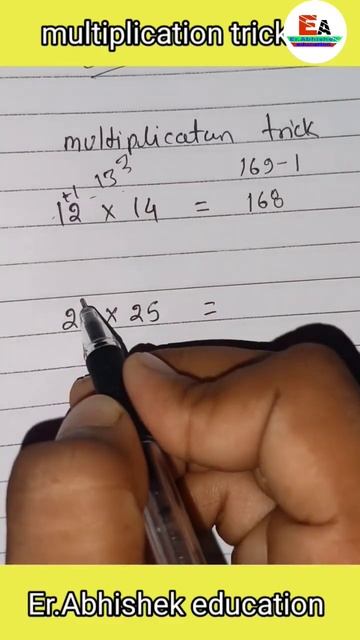 multiplication trick
EA
Er.Abhishek
education
multiplicatun trick
13² 169-1
+1
12 × 14 = 168
2 × 25 =
Er.Abhishek education